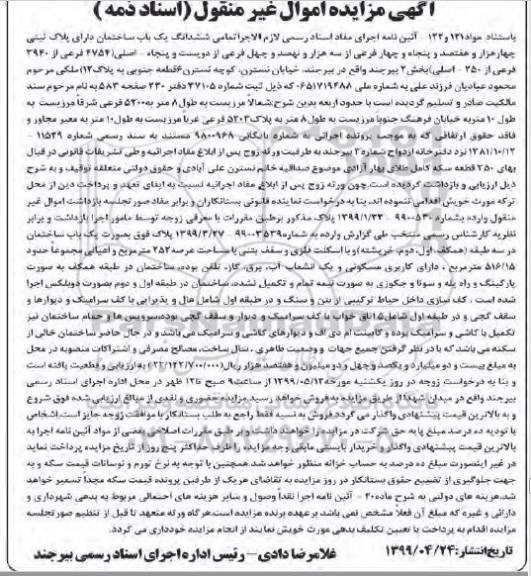 آگهی مزایده اموال غیر منقول (اسناد ذمه)
باستناد مواد ۱۲۱ و ۱۲۲ - آئین نامه اجرای مفاد اسناد رسمی لازم الاجرا تمامی ششدانگ یک باب ساختمان دارای پلاک ثبتی
چهار هزار و هفتصد و پنجاه و چهار فرعی از سه هزار و نهصد و چهل فرعی از دویست و پنجاه - اصلی (۴۷۵۴ فرعی از ۳۹۴۰
فرعی از ۲۵۰ - اصلی) بخش ۲ بیرجند واقع در بیرجند، خیابان نسترن، کوچه نسترن ۶ قطعه جنوبی به پلاک ۱۳) ملکی مرحوم
محمود عبادیان فرزند علی به شماره ملی ۰۶۵۱۷۱۹۴۸۸ که ذیل ثبت شماره ۳۷۱۰۵ دفتر ۲۳۰ صفحه ۵۸۳ به نام مرحوم سند
مالکیت صادر و تسلیم گردیده است با حدود اربعه بدین شرح: شمالا مرزیست به طول ۸ متر به ۵۲۰۰ فرعی شرقا مرزیست به
طول ۱۰ متر به خیابان فرهنگ جنوبا مرزیست به طول ۸ متر به پلاک ۵۲۰۳ فرعی غربا مرزیست به طول ۱۰ متر به معبر مجاور و
فاقد حقوق ارتفاقی که به موجب پرونده اجرائی به شماره بایگانی ۹۸۰۰۹۶۸ مستند به سند رسمی شماره ۱۱۵۳۹ -
۱۳۸۱/۱۰/۱۲ نزد دفترخانه ازدواج شماره ۳ بیرجند به طرفیت ورثه زوج پس از ابلاغ مفاد اجرائیه وطی تشریفات قانونی در قبال
بهای ۲۵۰ قطعه سکه کامل طلای بهار آزادی موضوع صداقیه خانم نسترن علی آبادی و حقوق دولتی متعلقه توقیف و به شرح
ذیل ارزیابی و بازداشت گردیده است. چون ورثه زوج پس از ابلاغ مفاد اجرائیه نسبت به ایفای تعهد و پرداخت دین از محل
ترکه مورث خویش اقدامی ننموده اند، بنا به درخواست نماینده قانونی بستانکاران و برابر مفاد صورتجلسه بازداشت اموال غیر
منقول وارده بشماره ۹۹۰۰۵۳۰ - ۱۳۹۹/۱/۲۳ پلاک مذکور برطبق مقررات با معرفی زوجه توسط مامور اجرا بازداشت و برابر
نظریه کارشناس رسمی منتخب طی گزارش وارده به شماره ۹۹۰۰۳۵۳۹ - ۱۳۹۹/۳/۲۷ پلاک فوق بصورت یک باب ساختمان
در سه طبقه (همکف، اول، دوم، خرپشته) و با اسکلت فلزی و سقف بتنی با مساحت عرصه ۲۵۲ مترمربع و اعیانی مجموعا حدود
۵۱۶/۱۵ مترمربع، دارای کاربری مسکونی و یک انشعاب آب، برق، گاز، تلفن بوده، ساختمان در طبقه همکف به صورت
پارکینگ و راه پله و سونا و جکوزی به صورت نیمه تمام و تکمیل نشده، ساختمان در طبقه اول و دوم بصورت دوبلکس اجرا
شده است. کف سازی داخل حیاط ترکیبی از بتن و سنگ و در طبقه اول شامل هال و پذیرایی با کف سرامیک و دیوارها و
سقف گچی و در طبقه اول شامل ۵ اتاق خواب با کف سرامیک و دیوار و سقف گچی بوده، سرویس ها و حمام ساختمان نیز
تکمیل با کاشی و سرامیک بوده و کابینت ام دی اف و دیوارهای کاشی و سرامیک می باشد و در حال حاضر ساختمان خالی از
سکنه می باشد که با در نظر گرفتن جمیع جهات و وضعیت ظاهری، سال ساخت، مصالح مصرفی و اشتراکات منصوبه در محل
به مبلغ بیست و دو میلیارد و یکصد و چهل و دو میلیون و هفتصد هزار ریال (۲۲/۱۴۲/۷۰۰/۰۰۰) به ارزیابی و قطعیت یافته است
و بنا به درخواست زوجه در روز یکشنبه مورخه ۱۳۹۹/۰۵/۱۲ از ساعت ۹ صبح تا ۱۲ ظهر در محل اداره اجرای اسناد رسمی
بیرجند واقع در میدان شهدا از طریق مزایده به فروش خواهد رسید. مزایده حضوری و نقدی از مبالغ ارزیابی شده فوق شروع
و به بالاترین قیمت پیشنهادی واگذار می گردد. فروش به نسیه فقط راجع به طلب بستانکار با موافقت زوجه جایز است. اشخاص
با تودیع ده درصد مبلغ پایه حق شرکت در مزایده را خواهند داشت. و بر طبق مقررات اصلاحی بعضی از مواد آئین نامه اجرا به
بالاترین قیمت پیشنهادی واگذار و خریدار بایستی مابقی وجه مزایده را ظرف حداکثر پنج روز از تاریخ مزایده پرداخت نماید
در غیر اینصورت مبلغ ده درصد به حساب خزانه منظور خواهد شد. همچنین با توجه به نرخ تورم و نوسانات قیمت سکه و به
جهت جلوگیری از تضییع حقوق بستانکار در روز مزایده به تقاضای هریک از طرفین پرونده قیمت سکه مجدا تسعیر خواهد
شد. هزینه های دولتی به شرح ماده ۴۰ - آئین نامه اجرا نقداً وصول و سایر هزینه های احتمالی مربوط به بدهی شهرداری و
دارائی و غیره که مبلغ آن فعلاً مشخص نمی باشد بر عهده برنده مزایده است. هرگاه ورثه متعهد تا قبل از تنظیم صورتجلسه
مزایده اقدام به پرداخت یا تعیین تکلیف بدهی مورث خویش نمایند از انجام مزایده خودداری می گردد.
تاریخ انتشار: ۱۳۹۹/۰۴/۲۴
غلامرضا دادی - رئیس اداره اجرای اسناد رسمی بیرجند